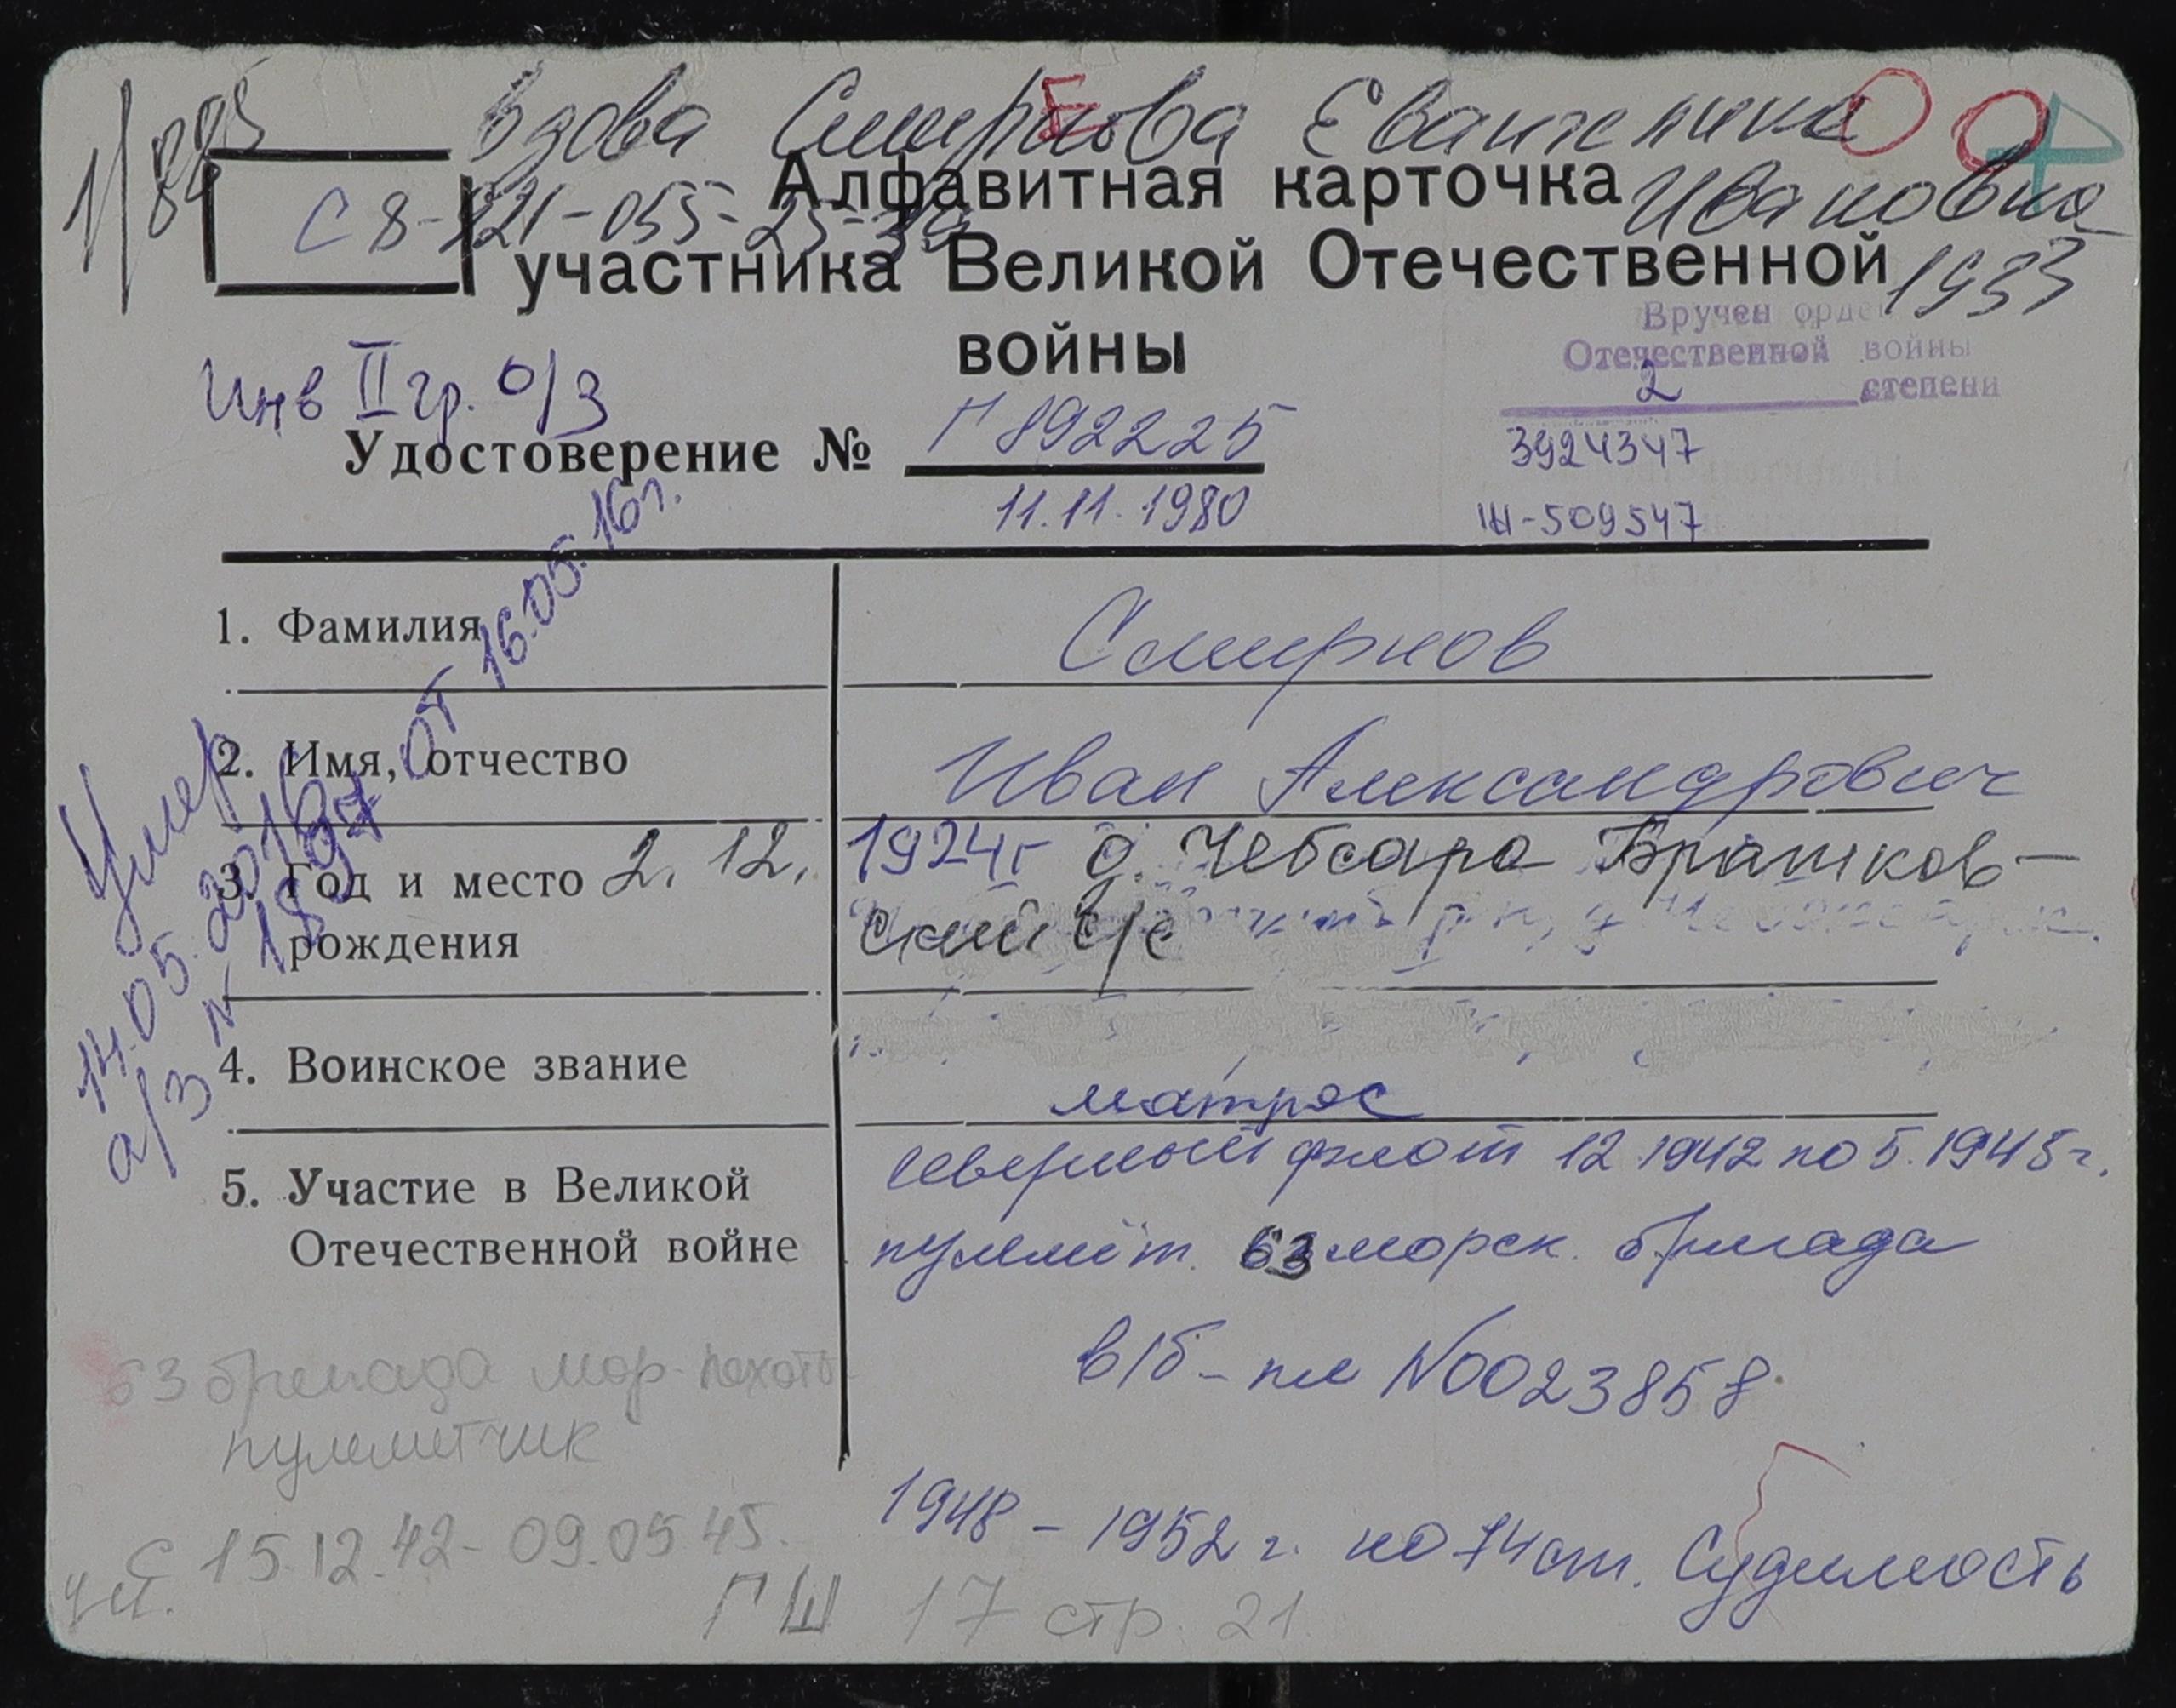 вдова Смирнова Евангелина
Ивановна
1933
1/885
Е
С 8-921-055-25-39
Алфавитная карточка
участника Великой Отечественной
войны
Инв II гр. о/з
Вручен орден
Отечественной войны
2 степени
3924347
Удостоверение № Г 892225
11.11.1980
Ш-509547
1. Фамилия Смирнов
2. Имя, отчество Иван Александрович
3. Год и место рождения 2. 12. 1924г д. Чебсара Братков-
ский с/с
4. Воинское звание матрос
5. Участие в Великой
Отечественной войне
Северный флот 12.1942 по 5.1945 г.
пулемёт. 63 морск. бригада
в/б-пл N0023858
1948 - 1952 г. по 74 ст. Судимость
Умер
14.05.2016
а/з N 1897 от 16.05.16г.
63 бригада мор-пехоты
пулеметчик
с 15.12.42 - 09.05.45.
ГШ 17 стр. 21